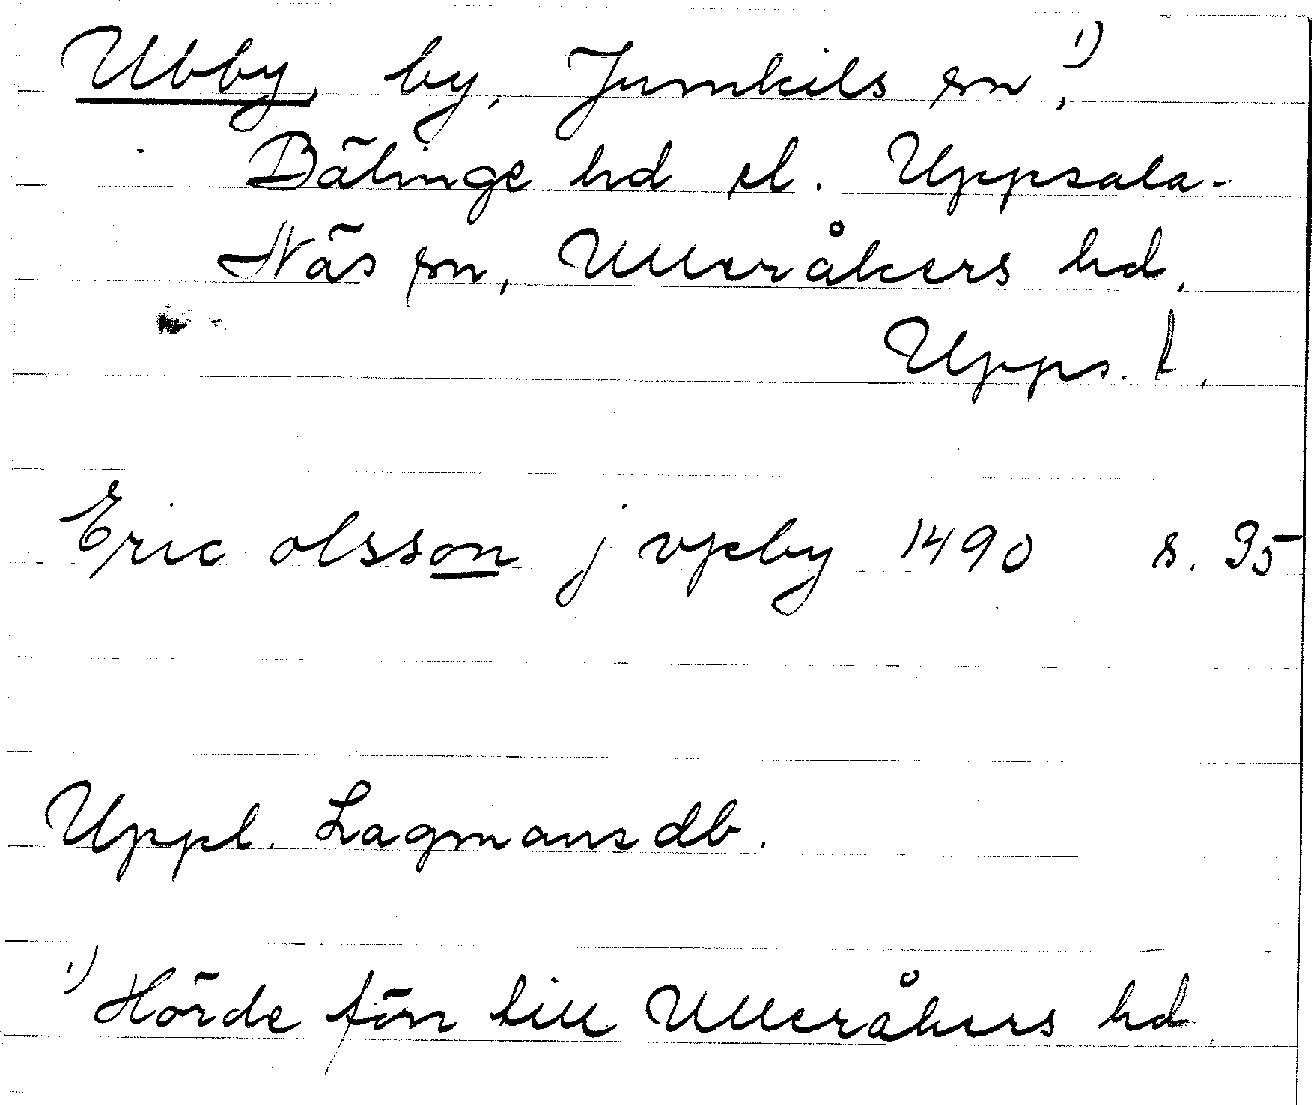 Ubby, by, Jumkils sn,¹)
Bälinge hd el. Uppsala-
Näs sn, Ulleråkers hd.
Upps. l.
Eric olsson j vpby 1490 s. 95
Uppl. Lagmansdb.
¹) Hörde förr till Ulleråkers hd.